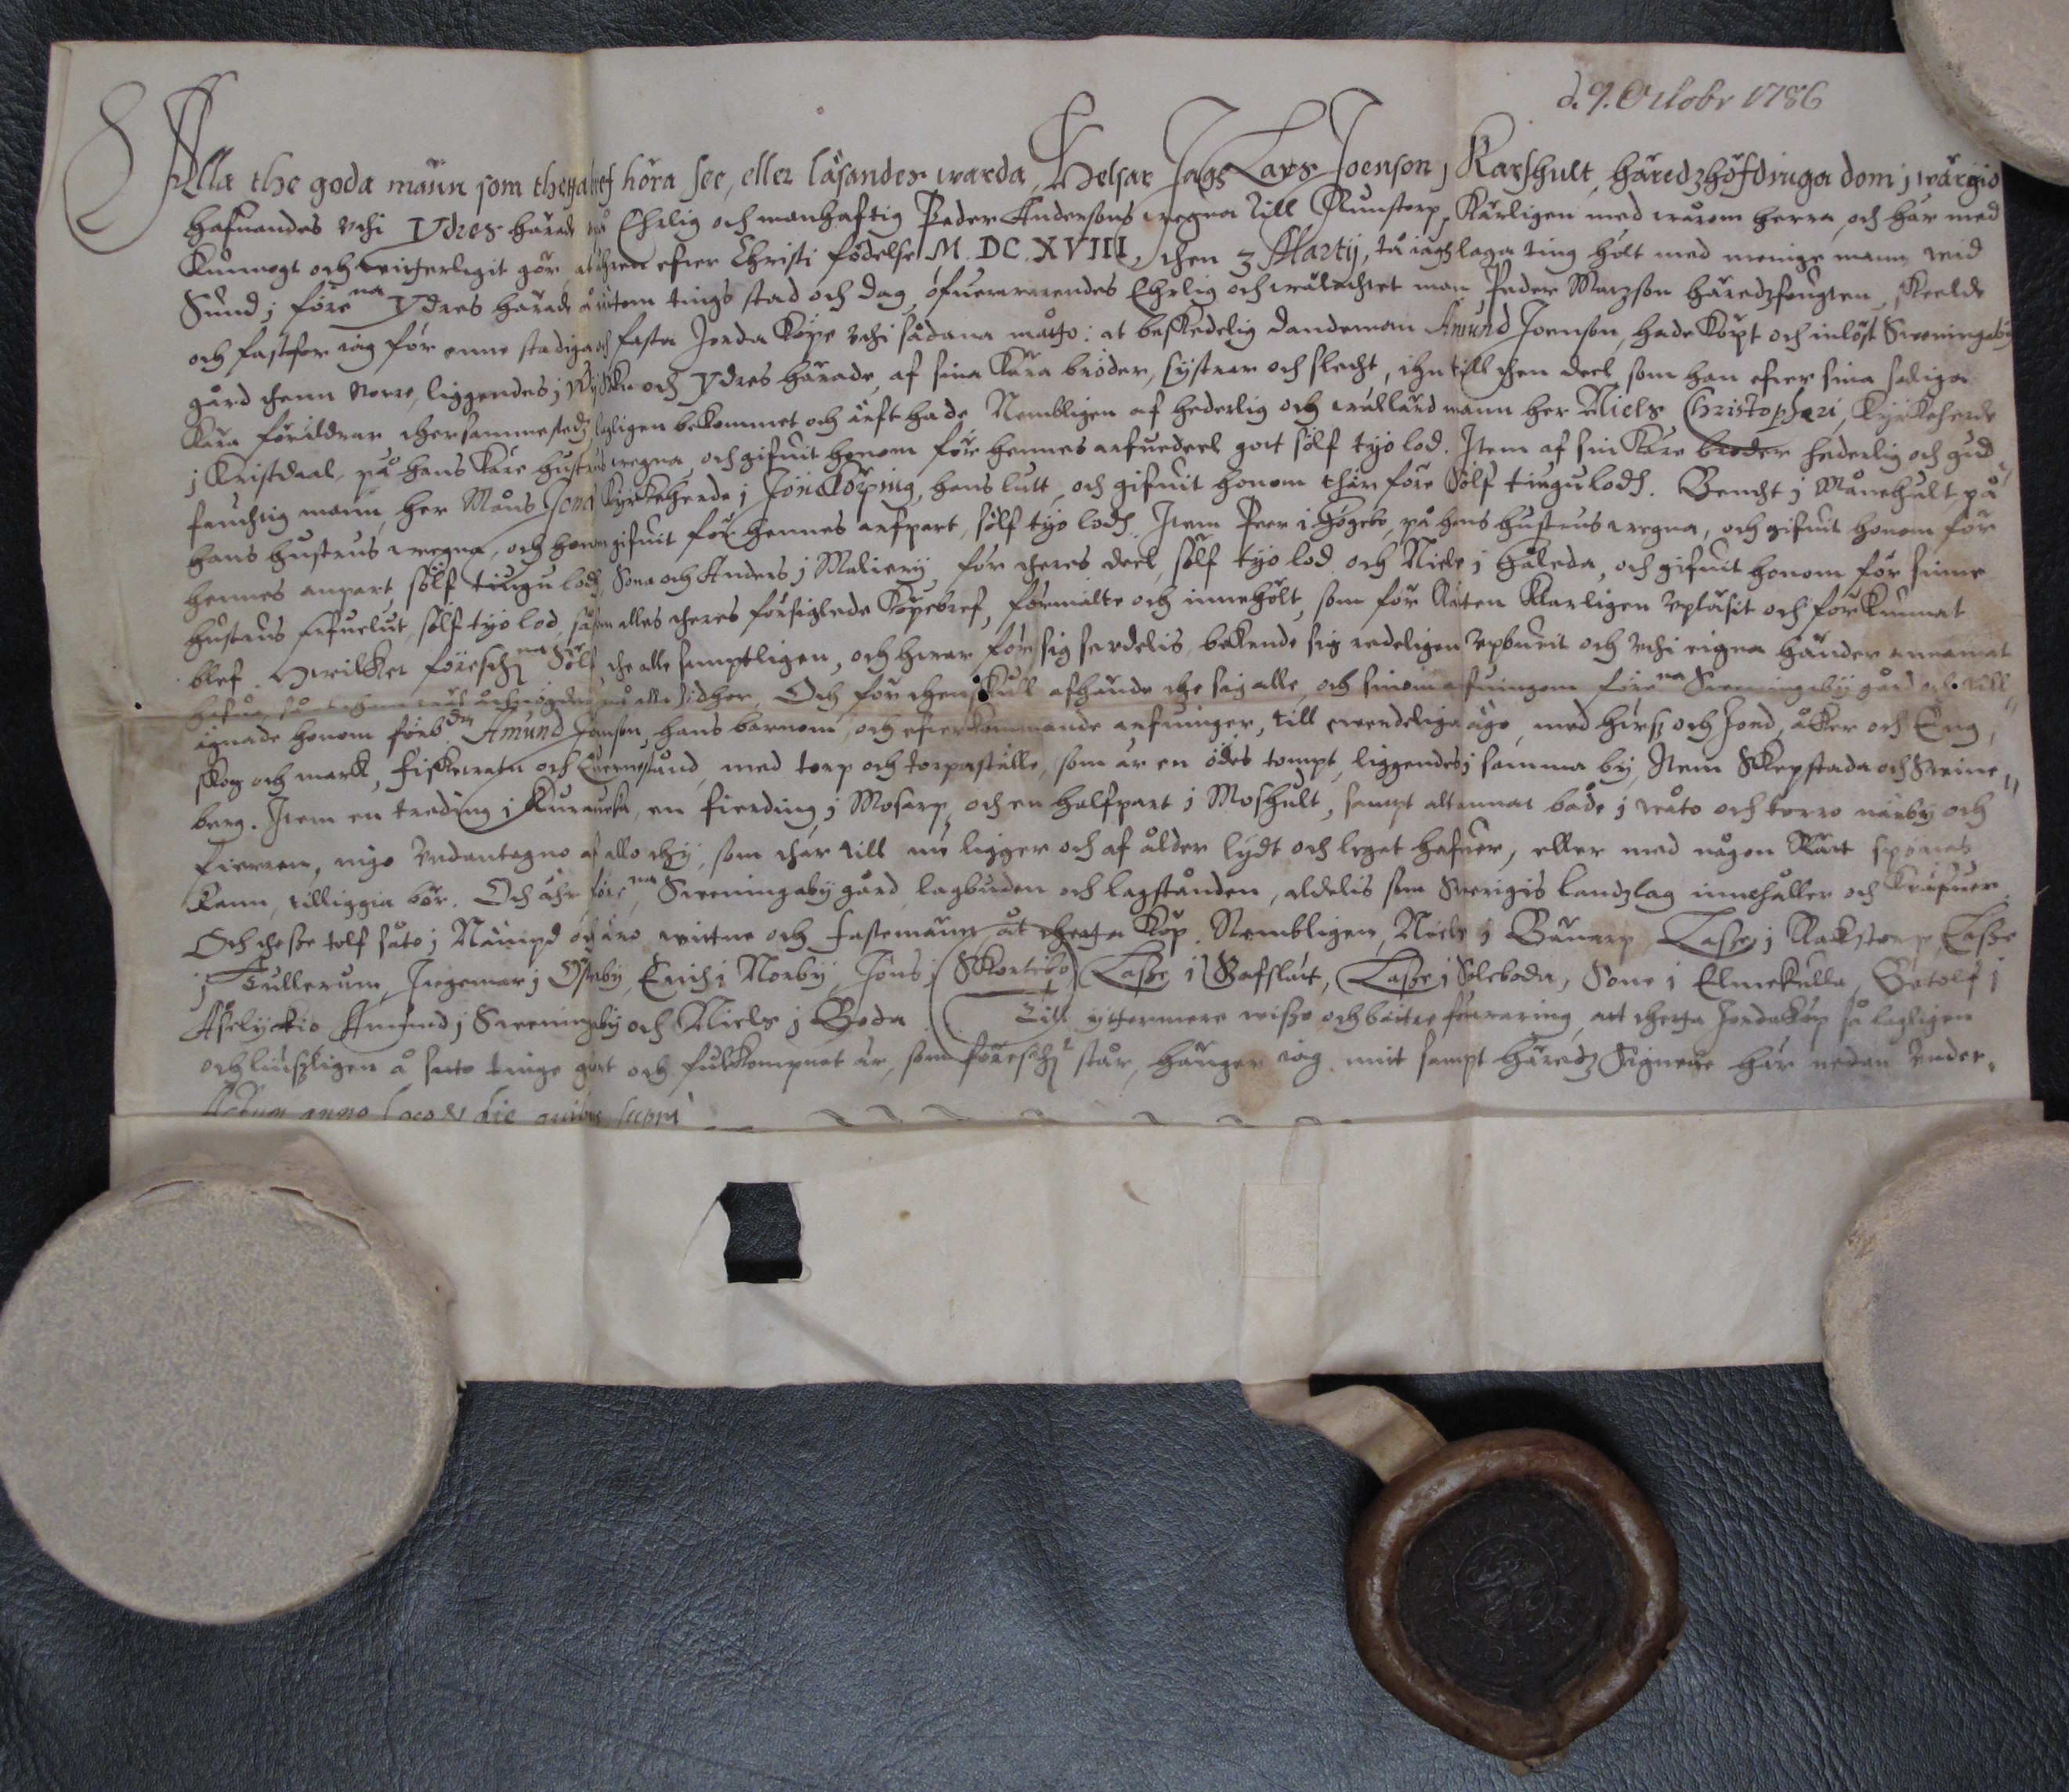 d. 9. Octobr 1786
Alla the goda männ som thetta bref höra see, eller läsandes warda, Helsar Jagh Lars Joenson j Karshult, häredzhöfdinga dom j wärgio
hafuandes vthi Ydres härade på Ehrlig och manhaftig Peder Andersons wegna till Runstorp, Kärligen med wårom herra, och här med
Kunnogt och witherlegit gör at åhrom efter Christi födelse M. DC. XVIII, then 3 Martij, tå iagh laga ting hölt med menige mann wid
Sund j före:na Ydres härade å rättom tings stad och dag, öfuerwarendes Ehrlig och wälachtet man Peder Matzson häredzfougten, skelde
och fastfor iag för enne stadiga och fasta Jorda Köpe vthi sådana måtto: at beskedelig dandeman Amund Joenson, hade Köpt och inlöst Sweningaby
gård thenn norre, liggendes j och Ydres härade, af sina Kära bröder, systrar och slecht, ihn till then deel som han efter sina saliga
Kära föräldrar thersammestedz lagligen bekommet och ärft hade Nembligen af hederlig och wällärd mann her Niels Christopheri, Kyrkeherde
j Kristdaal, på hans Käre hustrus wegna, och gifuit honom för hennes arfuedeel gott sölf tyo lod. Item af sin Käre broder hederlig och gud
fruchtig mann, her Måns Jona Kyrkeherde j Jöneköping, hans lutt, och gifuit honom thär före Sölf tiugu lodh. Bencht j Månehult, på
hans hustrus wegna, och honom gifuit för hennes arfpart, sölf tyo lodh. Item Peer i Högebo, på hans hustrus wegna, och gifuit honom för
hennes anpart sölf tiugu lodh, Sona och Anders j Maliery, för theres deel, sölf tyo lod och Niels j Håleda, och gifuit honom för sinne
hustrus arfuelut, sölf tyo lod, såsom alles theres försiglede Köpebref, förmälte och innehölt, som för Rätten Klarligen vpläsit och förkunnat
blef. Hwilket föresch:na Sölf, the alle samptligen, och hwar för sig serdelis, bekende sig redeligen vpburit och vthi eigna händer annamat
hafua på alla sidher. Och för then skul afhände the sig alle, och sinom arfuingom före:na Sweningaby gård och till
ägnade honom förb:de Amund Jonson, hans barnom, och efterkommande arfuinger, till ewerdeliga ägo, med hwss och Jord, åker och Eng,
skog och mark, fiskewatn och Quernestånd, med torp och torpaställe, som är en ödes tompt, liggendes j samma by, Item Skepstada och Sweine
berg. Item en treding j, en fierding j Mosarp, och en halfpart j Moshult, sampt altannat både j wåto och torro närby och
fierren, ingo vndantagno af allo thy, som ther till nu ligger och af ålder lydt och legat hafuer, eller med någon Rätt spörias
kann, tilliggia bör. Och ähr före:na Sweningaby gård, lagbuden och lagstånden, aldelis som Swerigis landzlag innehåller och Kräfuer.
Och thesse tolf såto j Nämpd och äro wittne och fastemänn åt thetta Köp. Nembligen, Niels j Bänarp Lasse j Rakstorp, Lasse
j Tullerum, Ingemar j Östraby, Erich i Norby, Jöns j Lasse i, Lasse j Solaboda, Sone i Elmekulla, Botolf j
Asslyckio Amund j Sweningaby och Niels j Boda. Till ytermere wisso och bättre förwaring att thetta Jordaköp så lagligen
och liusligen å satto tinge gört och fulkompnat är, som föresch:t står, hänger iag mitt sampt häredz Signete här nedan vnder.
Actum anno loco & die quibus supra